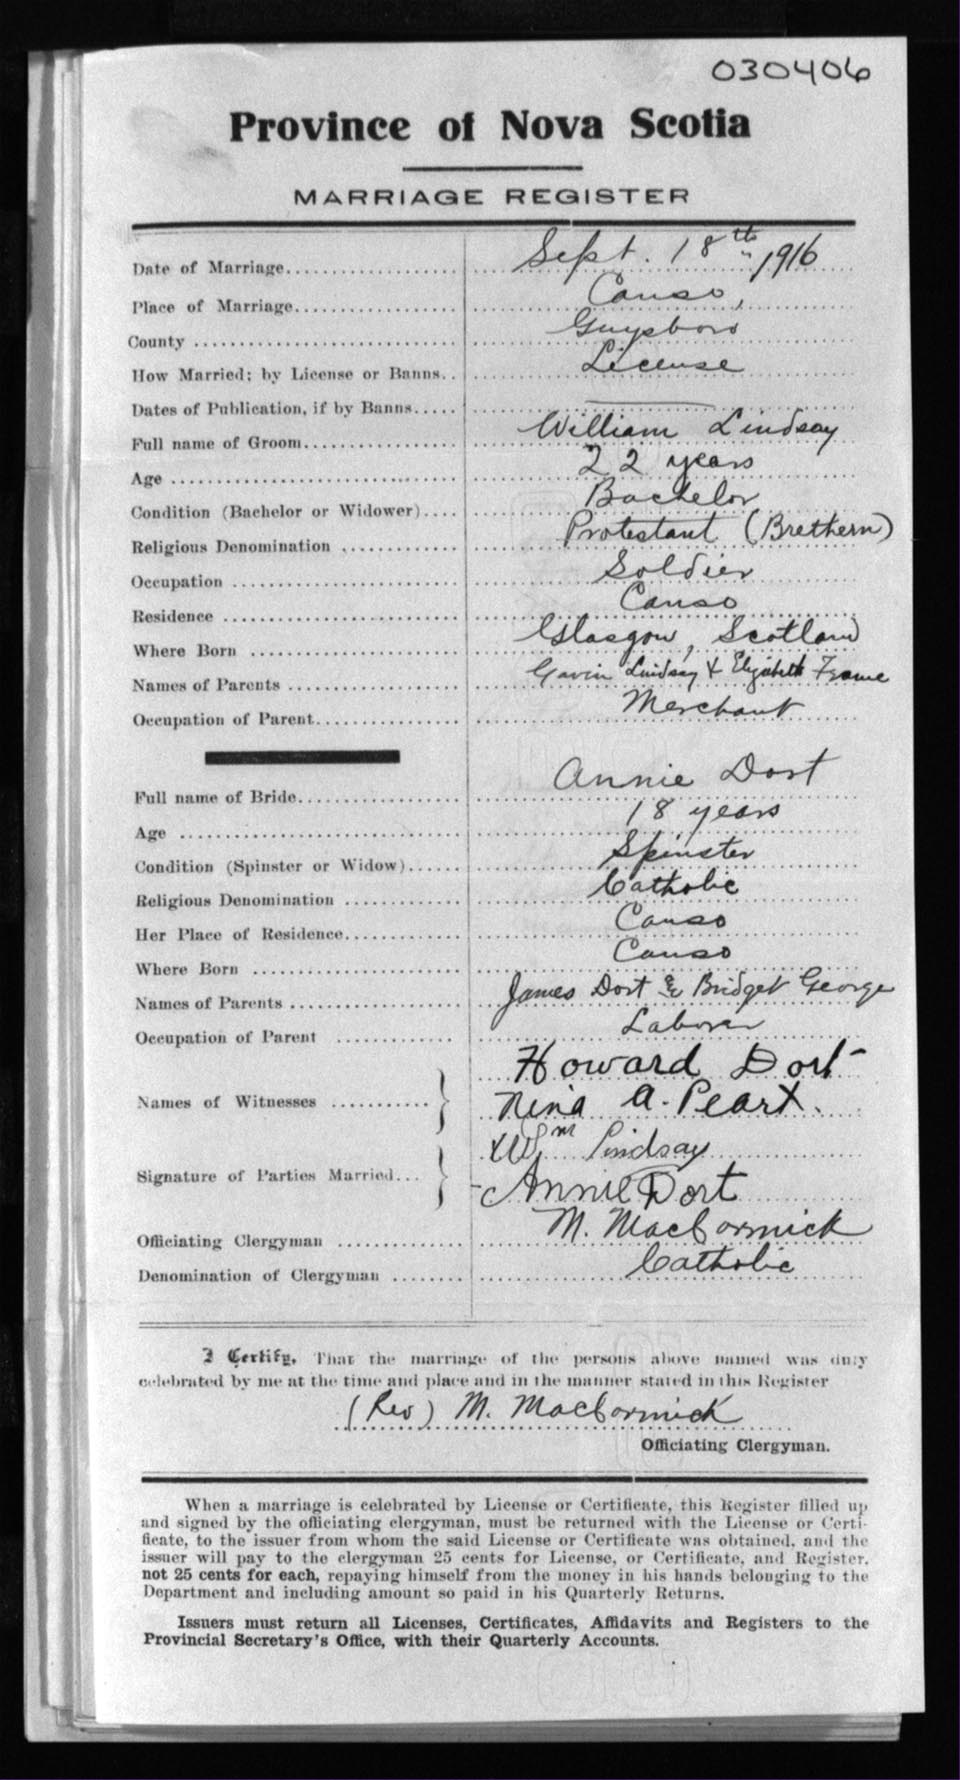 030406
Province of Nova Scotia
MARRIAGE REGISTER
Date of Marriage Sept. 18th, 1916
Place of Marriage Canso,
County Guysboro
How Married; by License or Banns License
Dates of Publication, if by Banns
Full name of Groom William Lindsay
Age 22 years
Condition (Bachelor or Widower) Bachelor
Religious Denomination Protestant (Brethern)
Occupation Soldier
Residence Canso
Where Born Glasgow, Scotland
Names of Parents Gavin Lindsay & Elizabeth Frame
Occupation of Parent Merchant
Full name of Bride Annie Dort
Age 18 years
Condition (Spinster or Widow) Spinster
Religious Denomination Catholic
Her Place of Residence Canso
Where Born Canso
Names of Parents James Dort & Bridget George
Occupation of Parent Laborer
Howard Dort
Names of Witnesses Nina A. Peart.
Wm Lindsay
Signature of Parties Married Annie Dort
Officiating Clergyman M. MacCormick
Denomination of Clergyman Catholic
I Certify, That the marriage of the persons above named was duly
celebrated by me at the time and place and in the manner stated in this Register
(Rev) M. MacCormick
Officiating Clergyman.
When a marriage is celebrated by License or Certificate, this Register filled up
and signed by the officiating clergyman, must be returned with the License or Certi-
ficate, to the issuer from whom the said License or Certificate was obtained, and the
issuer will pay to the clergyman 25 cents for License, or Certificate, and Register,
not 25 cents for each, repaying himself from the money in his hands belonging to the
Department and including amount so paid in his Quarterly Returns.
Issuers must return all Licenses, Certificates, Affidavits and Registers to the
Provincial Secretary's Office, with their Quarterly Accounts.